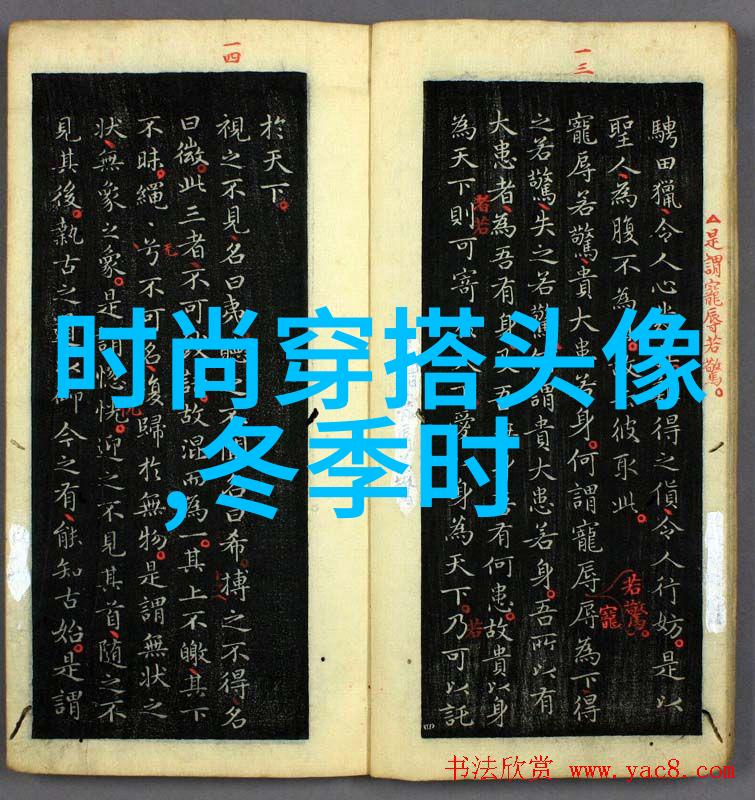 時尚穿搭头像
,冬季时
一三
△是謂寵辱若驚。
騁田獵令人心 得之貨令人行妨。是以
聖人為腹不為 彼取此。
寵辱若驚貴大患若身。何謂寵辱辱為下得
之若驚失之若驚 謂貴大患若身。吾所以有
若驚。
寵
大患者為吾有身及吾 有何患。故貴以身
者若
為天下則可寄 身為天下。乃可以託
若
一四
於天下。
視之不見名曰夷 名曰希搏之不得名
曰微。此三者不可 故混而為一。其上不皦其下
不昧。繩〻兮不可名復歸於無物。是謂無狀之
狀無象之象。是謂惚恍。迎之不見其首隨之不
見其後。執古之 御今之有。能知古始。是謂
书法欣赏 www.yac8.com